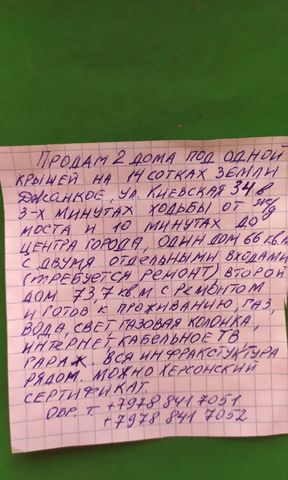 ПРОДАМ 2 ДОМА ПОД ОДНОЙ
КРЫШЕЙ НА 14 СОТКАХ ЗЕМЛИ
ДЖАНКОЕ, УЛ. КИЕВСКАЯ 34 В
3-Х МИНУТАХ ХОДЬБЫ ОТ Ж/Д
МОСТА И 10 МИНУТАХ ДО
ЦЕНТРА ГОРОДА, ОДИН ДОМ 66 КВ.М
С ДВУМЯ ОТДЕЛЬНЫМИ ВХОДАМИ
(ТРЕБУЕТСЯ РЕМОНТ) ВТОРОЙ
ДОМ 73,7 КВ.М С РЕМОНТОМ
И ГОТОВ К ПРОЖИВАНИЮ, ГАЗ,
ВОДА, СВЕТ ГАЗОВАЯ КОЛОНКА,
ИНТЕРНЕТ КАБЕЛЬНОЕ ТВ,
ГАРАЖ. ВСЯ ИНФРАКСТУКТУРА
РЯДОМ. МОЖНО ХЕРСОНСКИЙ
СЕРТИФИКАТ
ОБР. Т +7978 841 7051
+7978 841 7052